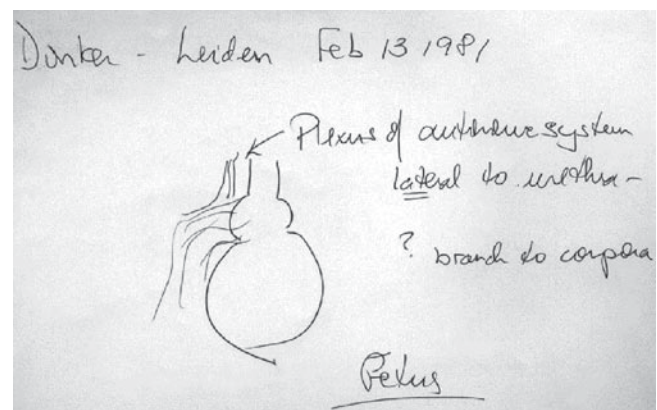 Donker - Leiden Feb 13 1981
Plexus of autonomic system
lateral to urethra -
? branch to corpora
Fetus